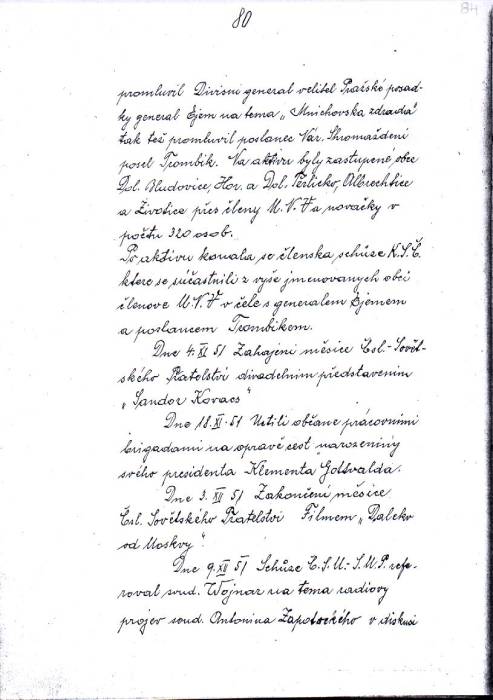 80
84
promluvil Divisní general velitel Pražské posad-
ky general Ejem na tema „Mnichovska zdrada"
tak též promluvil poslanec Nár. Shromaždění
posel Trombik. Na aktivu byly zastupené obce
Dol. Sludovice, Hor. a Dol. Těrlicko, Albrechtice
a Životice přes členy M.N.V a novačky v
počtu 320 osob.
Po aktivu konala se členska schůze K.S.Č.
ktere se súčastnili z vyše jmenovaných obcí
členove M.N.V v čele s generalem Ejemem
a poslancem Trombikem.
Dne 4. XI 51 Zahajení měsíce Čsl.-Sovět-
ského Přatelství divadelním představením
„Sandor Kovacs"
Dne 18. XI. 51 Uctili občane prácovními
brigadami na opravě cest narozeniny
svého presidenta Klementa Gottvalda.
Dne 3. XII 51 Zakončení měsice
Čsl. Sovětského Přatelství Filmem „Daleko
od Moskvy".
Dne 9. XII 51 Schůze Č.S.M.-S.M.P. refe-
roval soud. Wojnar na tema radiovy
projev soud. Antonina Zapotockého v diskusi